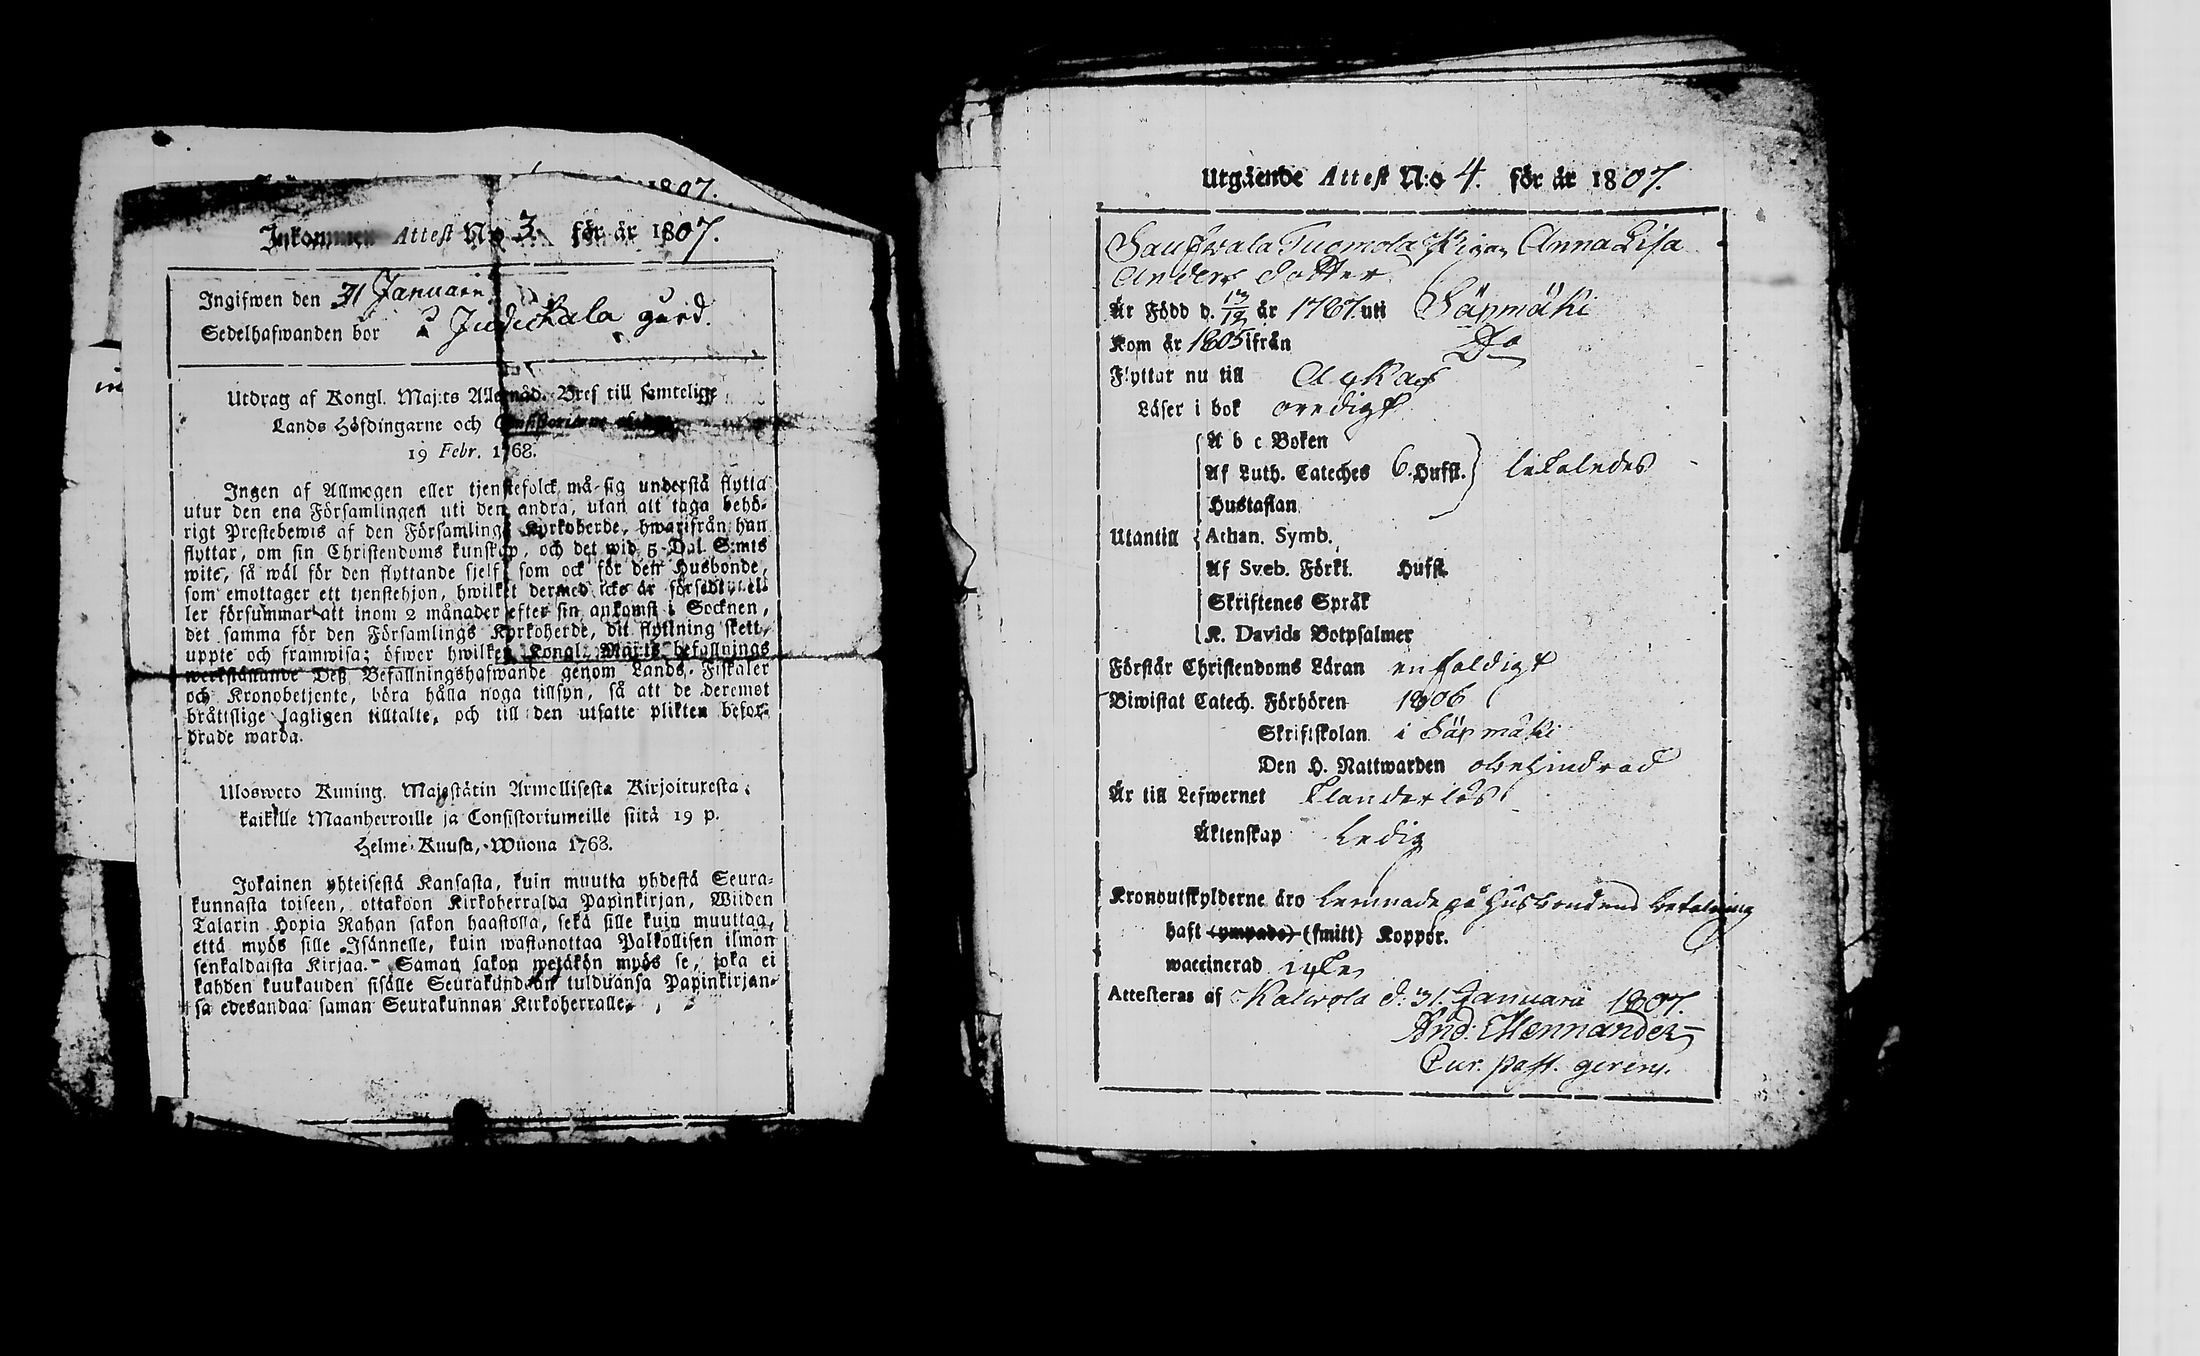 1807.
Inkommen Attest No 3. för år 1807.
Ingifwen den 31 Januarii
Sedelhafwanden bor Judickala gård.
in
Utdrag af Kongl. Maj:ts Allernåd. Bref till samtelige
Lands Höfdingarne och Consistorierne
19 Febr. 1768.
Ingen af Allmogen eller tjenstefolck må sig understå flytta
utur den ena Församlingen uti den andra, utan att taga behö-
rigt Prestebewis af den Församlings Kyrkoherde, hwarifrån han
flyttar, om sin Christendoms kunskap, och det wid 5 Dal. S:mts
wite, så wäl för den flyttande sjelf, som ock för den Husbonde,
som emottager ett tjenstehjon, hwilket dermed icke är försedt, el-
ler försummar att inom 2 månader efter sin ankomst i Socknen,
det samma för den Församlings Kyrkoherde, dit flyttning skett,
uppte och framwisa; öfwer hwilken Kongl. Maj:ts befallnings
werkställande Deß Befallningshafwande genom Lands-Fiskaler
och Kronobetjente, böra hålla noga tillsyn, så att de deremot
bråttslige lagligen tilltalte, och till den utsatte plikten befor-
drade warda.
Uloswcto Kuning. Majestätin Armollisesta Kirjoituxesta,
kaikille Maanherroille ja Consistoriumeille siitä 19 p.
Helme-Kuusa, Wuona 1768.
Jokainen yhteisestä Kansasta, kuin muutta yhdestä Seura-
kunnasta toiseen, ottakoon Kirkoherralda Papinkirjan, Wiiden
Talarin Hopia Rahan sakon haastolla, sekä sille kuin muuttaa,
että myös sille Isännelle, kuin wastanottaa Palkollisen ilman
senkaldaista Kirjaa. Saman sakon wetäkön myös se, joka ei
kahden kuukauden sisälle Seurakundaan tulduansa Papinkirjan-
sa edesandaa saman Seurakunnan Kirkoherralle.
Utgående Attest N:o 4. för år 1807.
Tuomola Pigan Anna Lisa
Anders dotter
Är Född d. 13/12 år 1787. uti Säxmäki
Kom år 1805 ifrån Do
Flyttar nu till Ackas
Läser i bok oredigt
A b c Boken
Af Luth. Cateches 6. Hufst. likaledes
Hustaflan
Utantill Athan. Symb.
Af Sveb. Förkl. Hufst.
Skriftenes Språk
K. Davids Botpsalmer
Förstår Christendoms Läran enfaldigt
Biwistat Catech. Förhören 1806
Skriftskolan i Säxmäki
Den H. Nattwarden obehindrad
Är till Lefwernet klanderlös
Äktenskap Ledig
Kronoutskylderne äro lemnade på Husbondens betalning
haft (ympade) (smitt) Koppor.
waccinerad icke
Attesteras af Kalvola d. 31. Januarii 1807.
And: E Mennander
Cur. past. gerens.